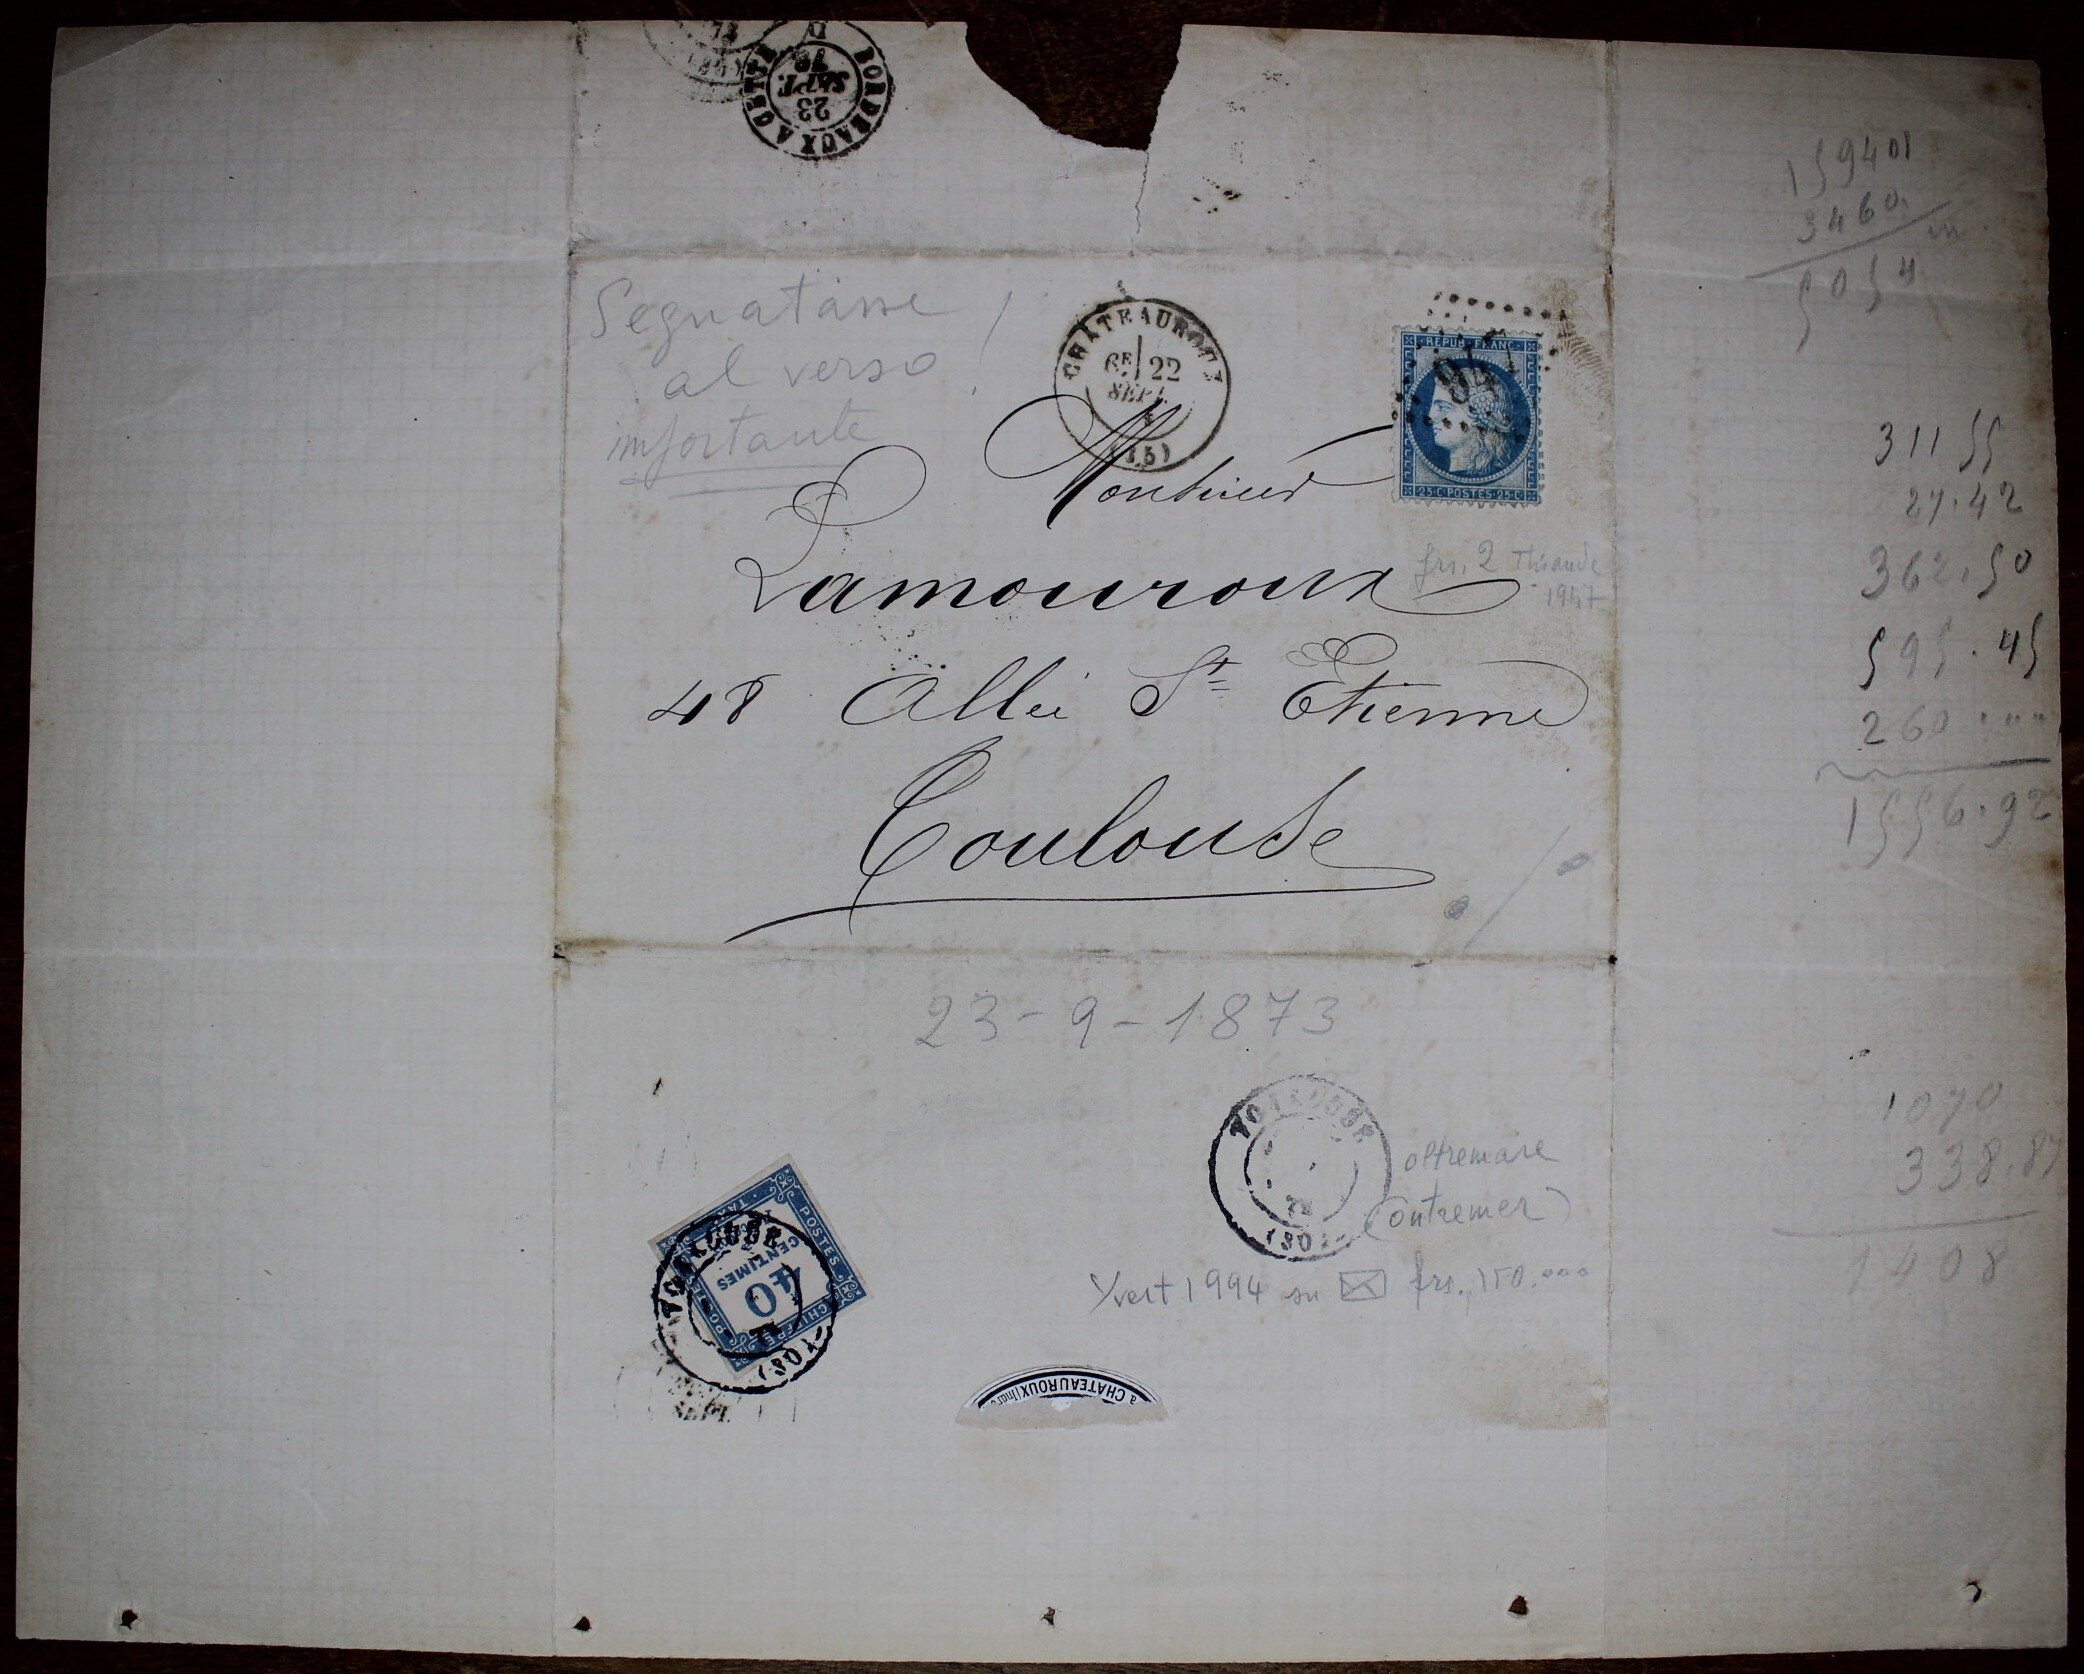 BORDEAUX A CETTE
23
SEPT.
73
Segnatasse
al verso!
importante
CHATEAUROUX
6E 22
SEPT.
(35)
REPUB·FRANC·
25·C·POSTES·25·C·
Monsieur
Lamouroux
frs. 2 Thiaude
1947
48 Allée St Etienne
Toulouse
23-9-1873
TOULOUSE
73
(30)
oltremare
(outremer)
Yvert 1994 su frs. 150.000
POSTES
CHIFFRE
TAXE
40
CENTIMES
TOULOUSE
73
(30)
SEPT.
à CHATEAUROUX (Indre
159401
3460
5054
311 55
27.42
362.50
595.45
260.""
1556.92
1070
338.87
1408